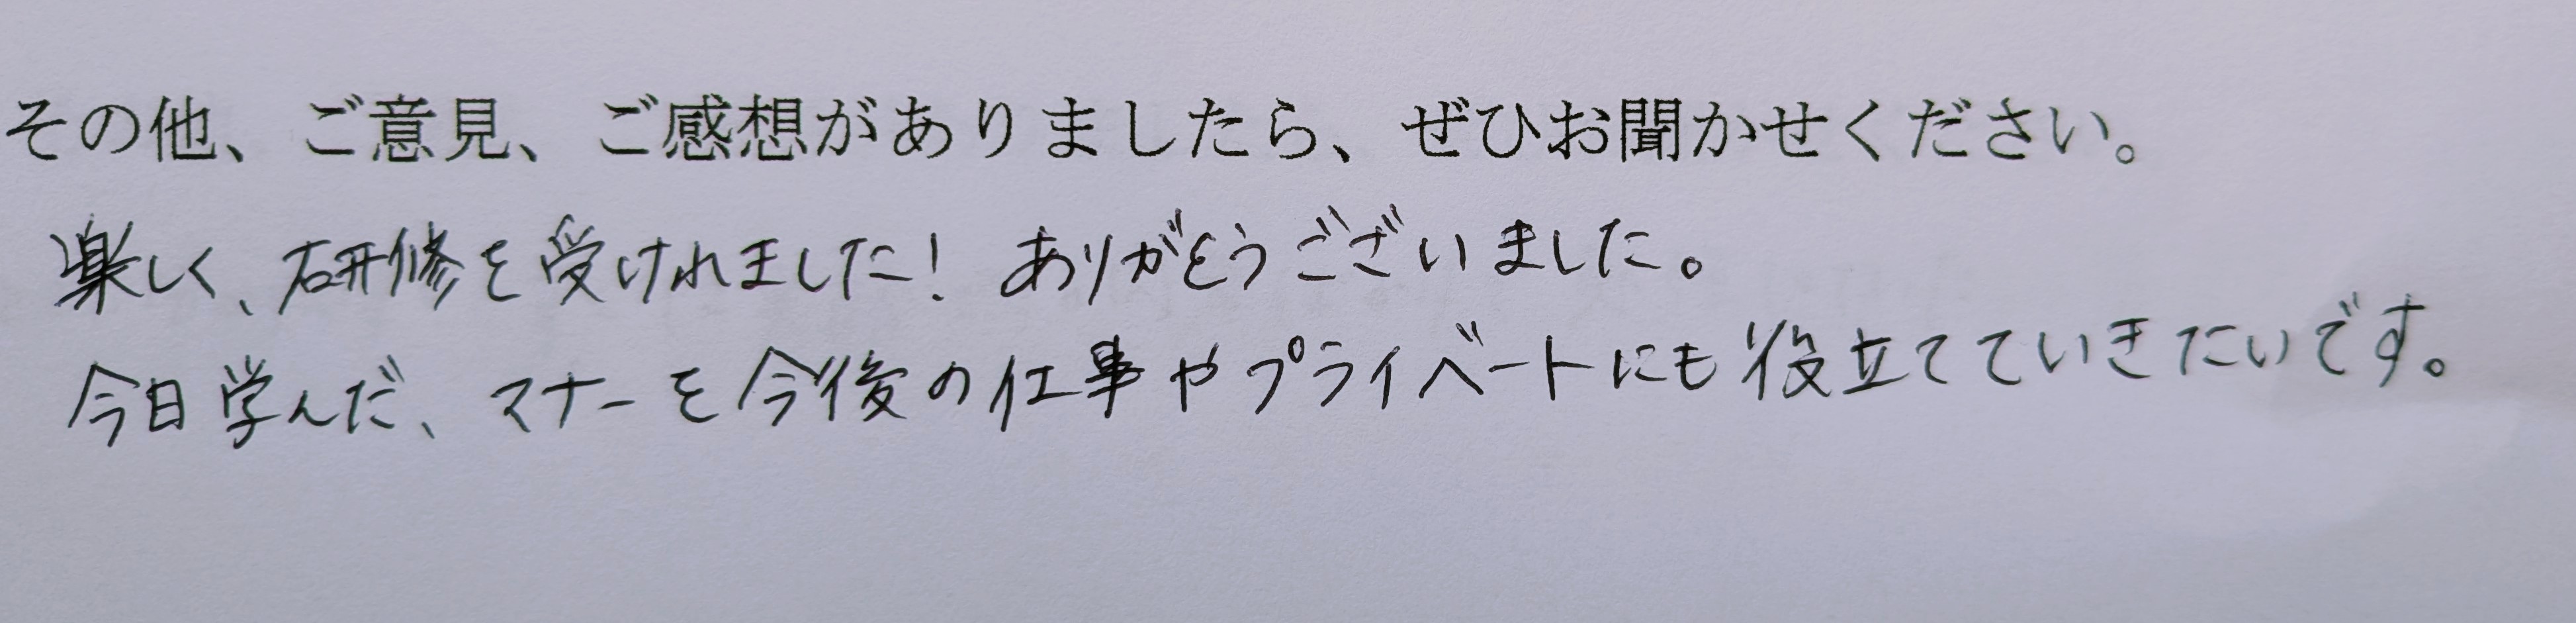 その他、ご意見、ご感想がありましたら、ぜひお聞かせください。
楽しく、研修を受けれました！ありがとうございました。
今日学んだ、マナーを今後の仕事やプライベートにも役立てていきたいです。